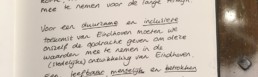 mee te nemen voor de lange termijn.
Voor een duurzame en inclusieve
toekomst van Eindhoven moeten we
onszelf de opdracht geven om deze
waarden mee te nemen in de
(stedelijke) ontwikkeling van Eindhoven.
Een leefbaar menselijk en betrokken